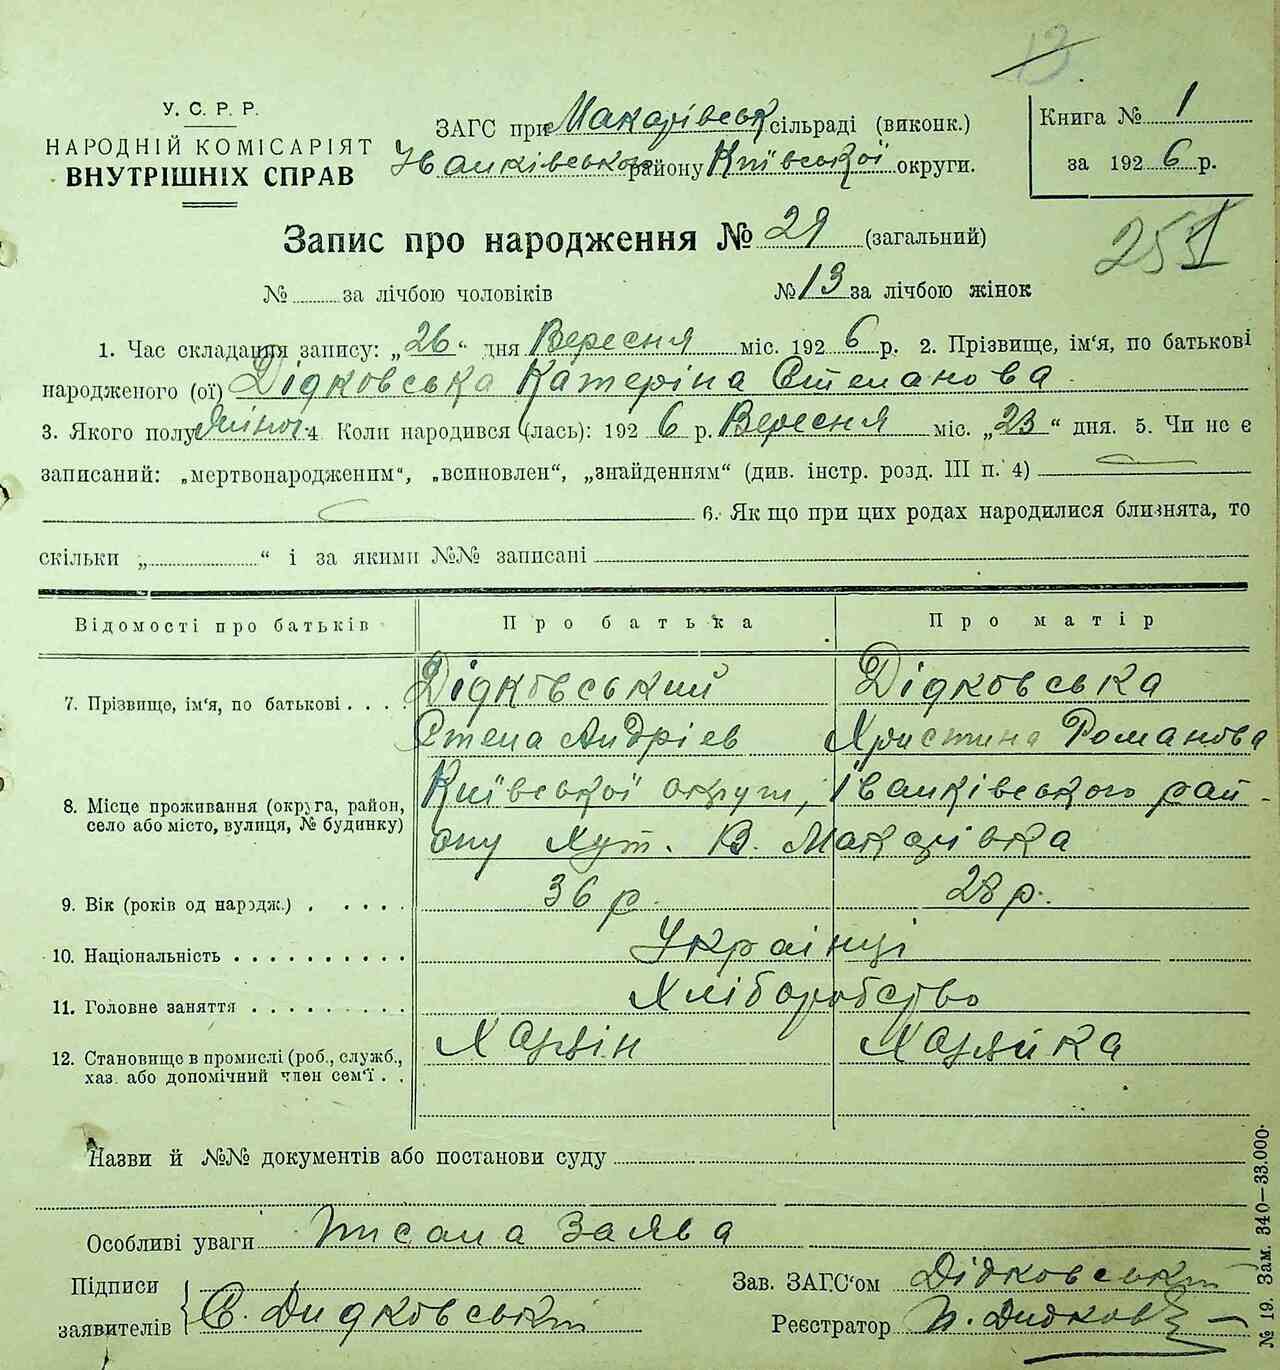 13
У. С. Р. Р.
НАРОДНІЙ КОМІСАРІЯТ
ВНУТРІШНІХ СПРАВ
ЗАГС при Макарівськ сільраді (виконк.)
Іванківського району Київської округи.
Книга № 1
за 1926 р.
Запис про народження № 29 (загальний)
251
№ за лічбою чоловіків № 13 за лічбою жінок
1. Час складання запису: „26“ дня Вересня міс. 1926 р. 2. Прізвище, ім'я, по батькові
народженого (ої) Дідковська Катеріна Степанова
3. Якого полу Жіноч. 4 Коли народився (лась): 1926 р. Вересня міс. „23“ дня. 5. Чи не є
записаний: „мертвонародженим“, „всиновлен“, „знайденням“ (див. інстр. розд. III п. 4)
6. Як що при цих родах народилися близнята, то
скільки „ “ і за якими №№ записані
Відомості про батьків Про батька Про матір
7. Прізвище, ім'я, по батькові . . . . Дідковський Дідковська
Степа Андріев Христина Романова
8. Місце проживання (округа, район, село або місто, вулиця, № будинку) Київської округи, Іванківського рай-
ону Хут. В. Макарівка
9. Вік (років од народж.) . . . . . 36 р. 28 р.
10. Національність . . . . . . . . . . Українці
11. Головне заняття . . . . . . . . . Хліборобство
12. Становище в промислі (роб., служб., Хазяїн Хазяйка
хаз. або допомічний член сем'ї . .
Назви й №№ документів або постанови суду
Особливі уваги Писана Заява
Підписи
заявителів С. Дидковський
Зав. ЗАГС'ом Дідковський
Реєстратор П. Дидков
№ 19. Зам. 340—33.000.